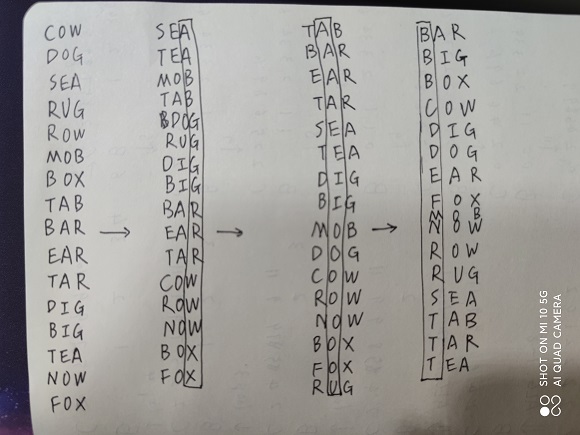 COW
DOG
SEA
RUG
ROW
MOB
BOX
TAB
BAR →
EAR
TAR
DIG
BIG
TEA
NOW
FOX
SEA
TEA
MOB
TAB
DOG
RUG
DIG
BIG
BAR
EAR →
TAR
COW
ROW
NOW
BOX
FOX
TAB
BAR
EAR
TAR
SEA
TEA
DIG
BIG
MOB →
DOG
COW
ROW
NOW
BOX
FOX
RUG
BAR
BIG
BOX
COW
DIG
DOG
EAR
FOX
MOB
NOW
ROW
RUG
SEA
TAB
TAR
TEA
SHOT ON MI 10 5G
AI QUAD CAMERA